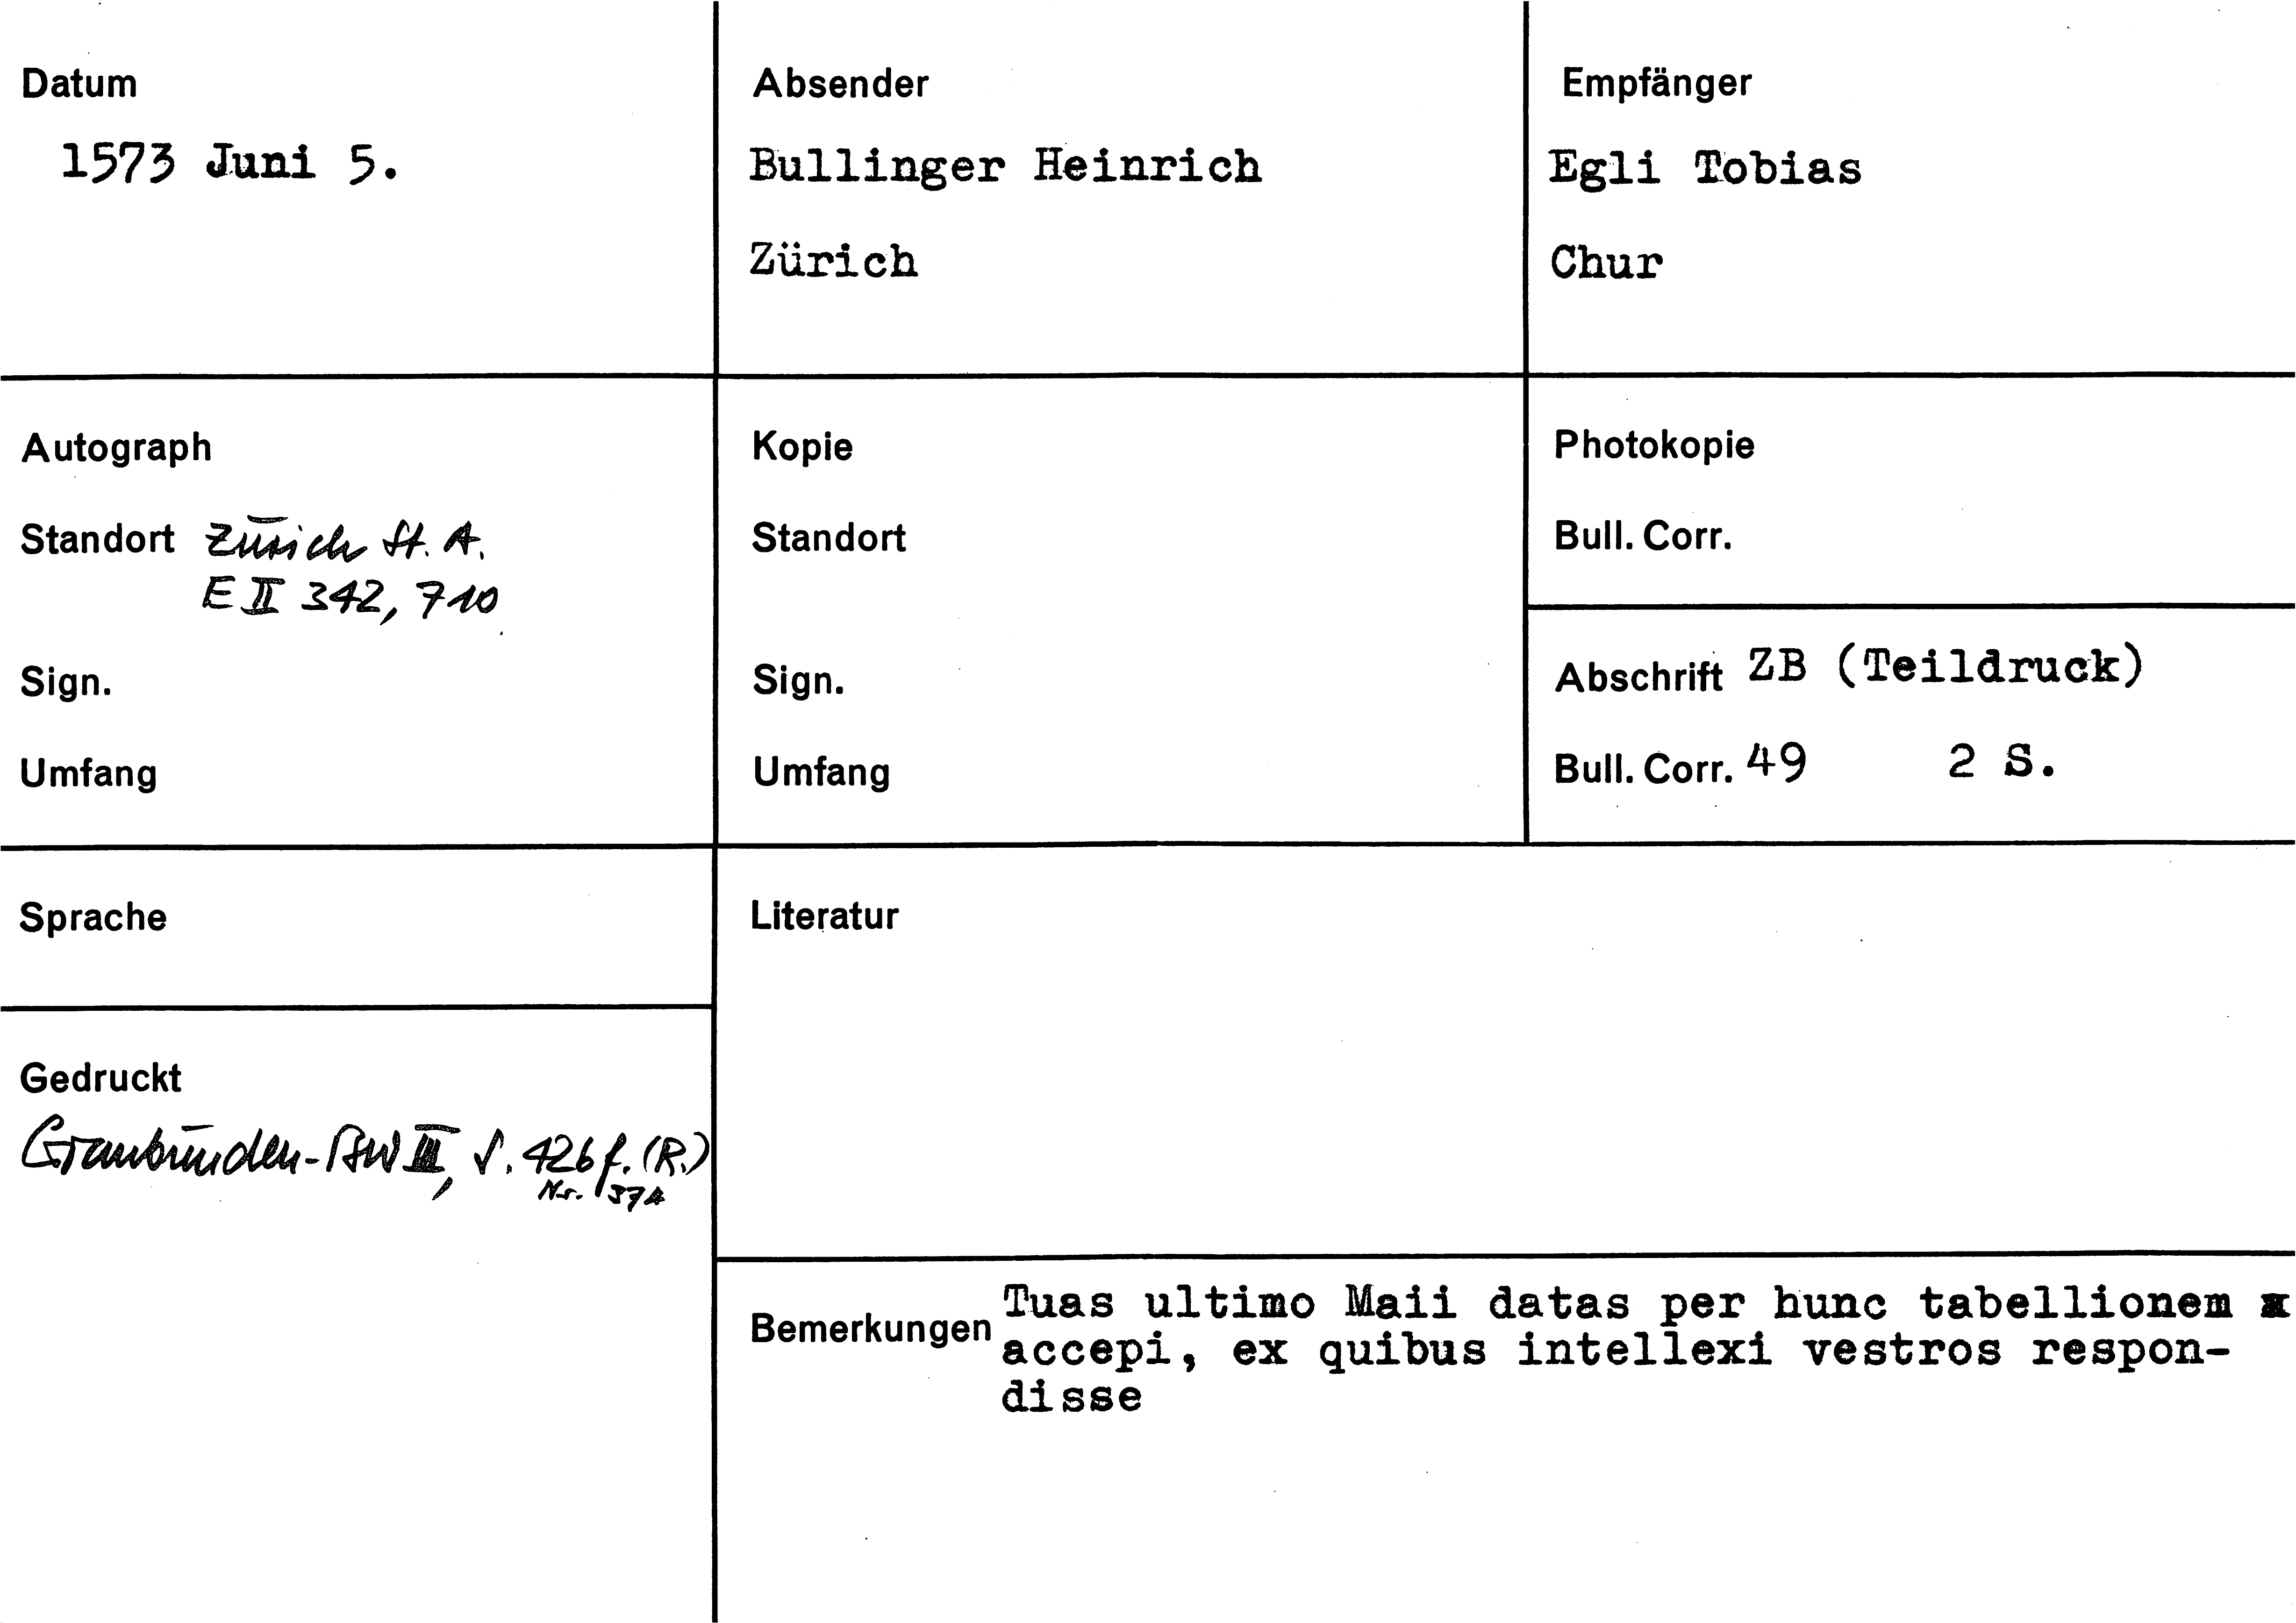 Datum
1573 Juni 5.
Absender
Bullinger Heinrich
Zürich
Empfänger
Egli Tobias
Chur
Autograph
Standort Zürich St. A.
E II 342, 710
Sign.
Umfang
Kopie
Standort
Sign.
Umfang
Photokopie
Bull. Corr.
Abschrift ZB (Teildruck)
Bull. Corr. 49 2 S.
Sprache
Literatur
Gedruckt
Graubünden-BW III, S. 426 f. (R.)
Nr.
Bemerkungen Tuas ultimo Maii datas per hunc tabellionem
accepi, ex quibus intellexi vestros respon-
disse